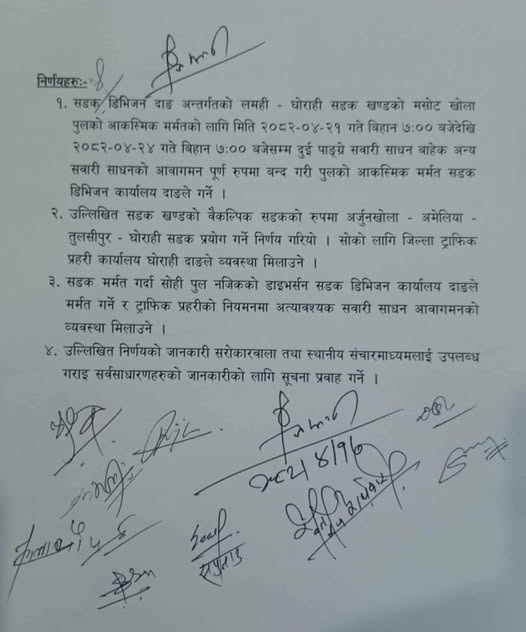 निर्णयहरुः-
१. सडक डिभिजन दाङ अन्तर्गतको लमही - घोराही सडक खण्डको मसोट खोला
पुलको आकस्मिक मर्मतको लागि मिति २०८२-०४-२१ गते बिहान ७:०० बजेदेखि
२०८२-०४-२४ गते बिहान ७:०० बजेसम्म दुई पाङ्ग्रे सवारी साधन बाहेक अन्य
सवारी साधनको आवागमन पूर्ण रुपमा बन्द गरी पुलको आकस्मिक मर्मत सडक
डिभिजन कार्यालय दाङले गर्ने ।
२. उल्लिखित सडक खण्डको वैकल्पिक सडकको रुपमा अर्जुनखोला - अमेलिया -
तुलसीपुर - घोराही सडक प्रयोग गर्ने निर्णय गरियो । सोको लागि जिल्ला ट्राफिक
प्रहरी कार्यालय घोराही दाङले व्यवस्था मिलाउने ।
३. सडक मर्मत गर्दा सोही पुल नजिकको डाइभर्सन सडक डिभिजन कार्यालय दाङले
मर्मत गर्ने र ट्राफिक प्रहरीको नियमनमा अत्यावश्यक सवारी साधन आवागमनको
व्यवस्था मिलाउने ।
४. उल्लिखित निर्णयको जानकारी सरोकारवाला तथा स्थानीय संचारमाध्यमलाई उपलब्ध
गराइ सर्वसाधारणहरुको जानकारीको लागि सूचना प्रवाह गर्ने ।